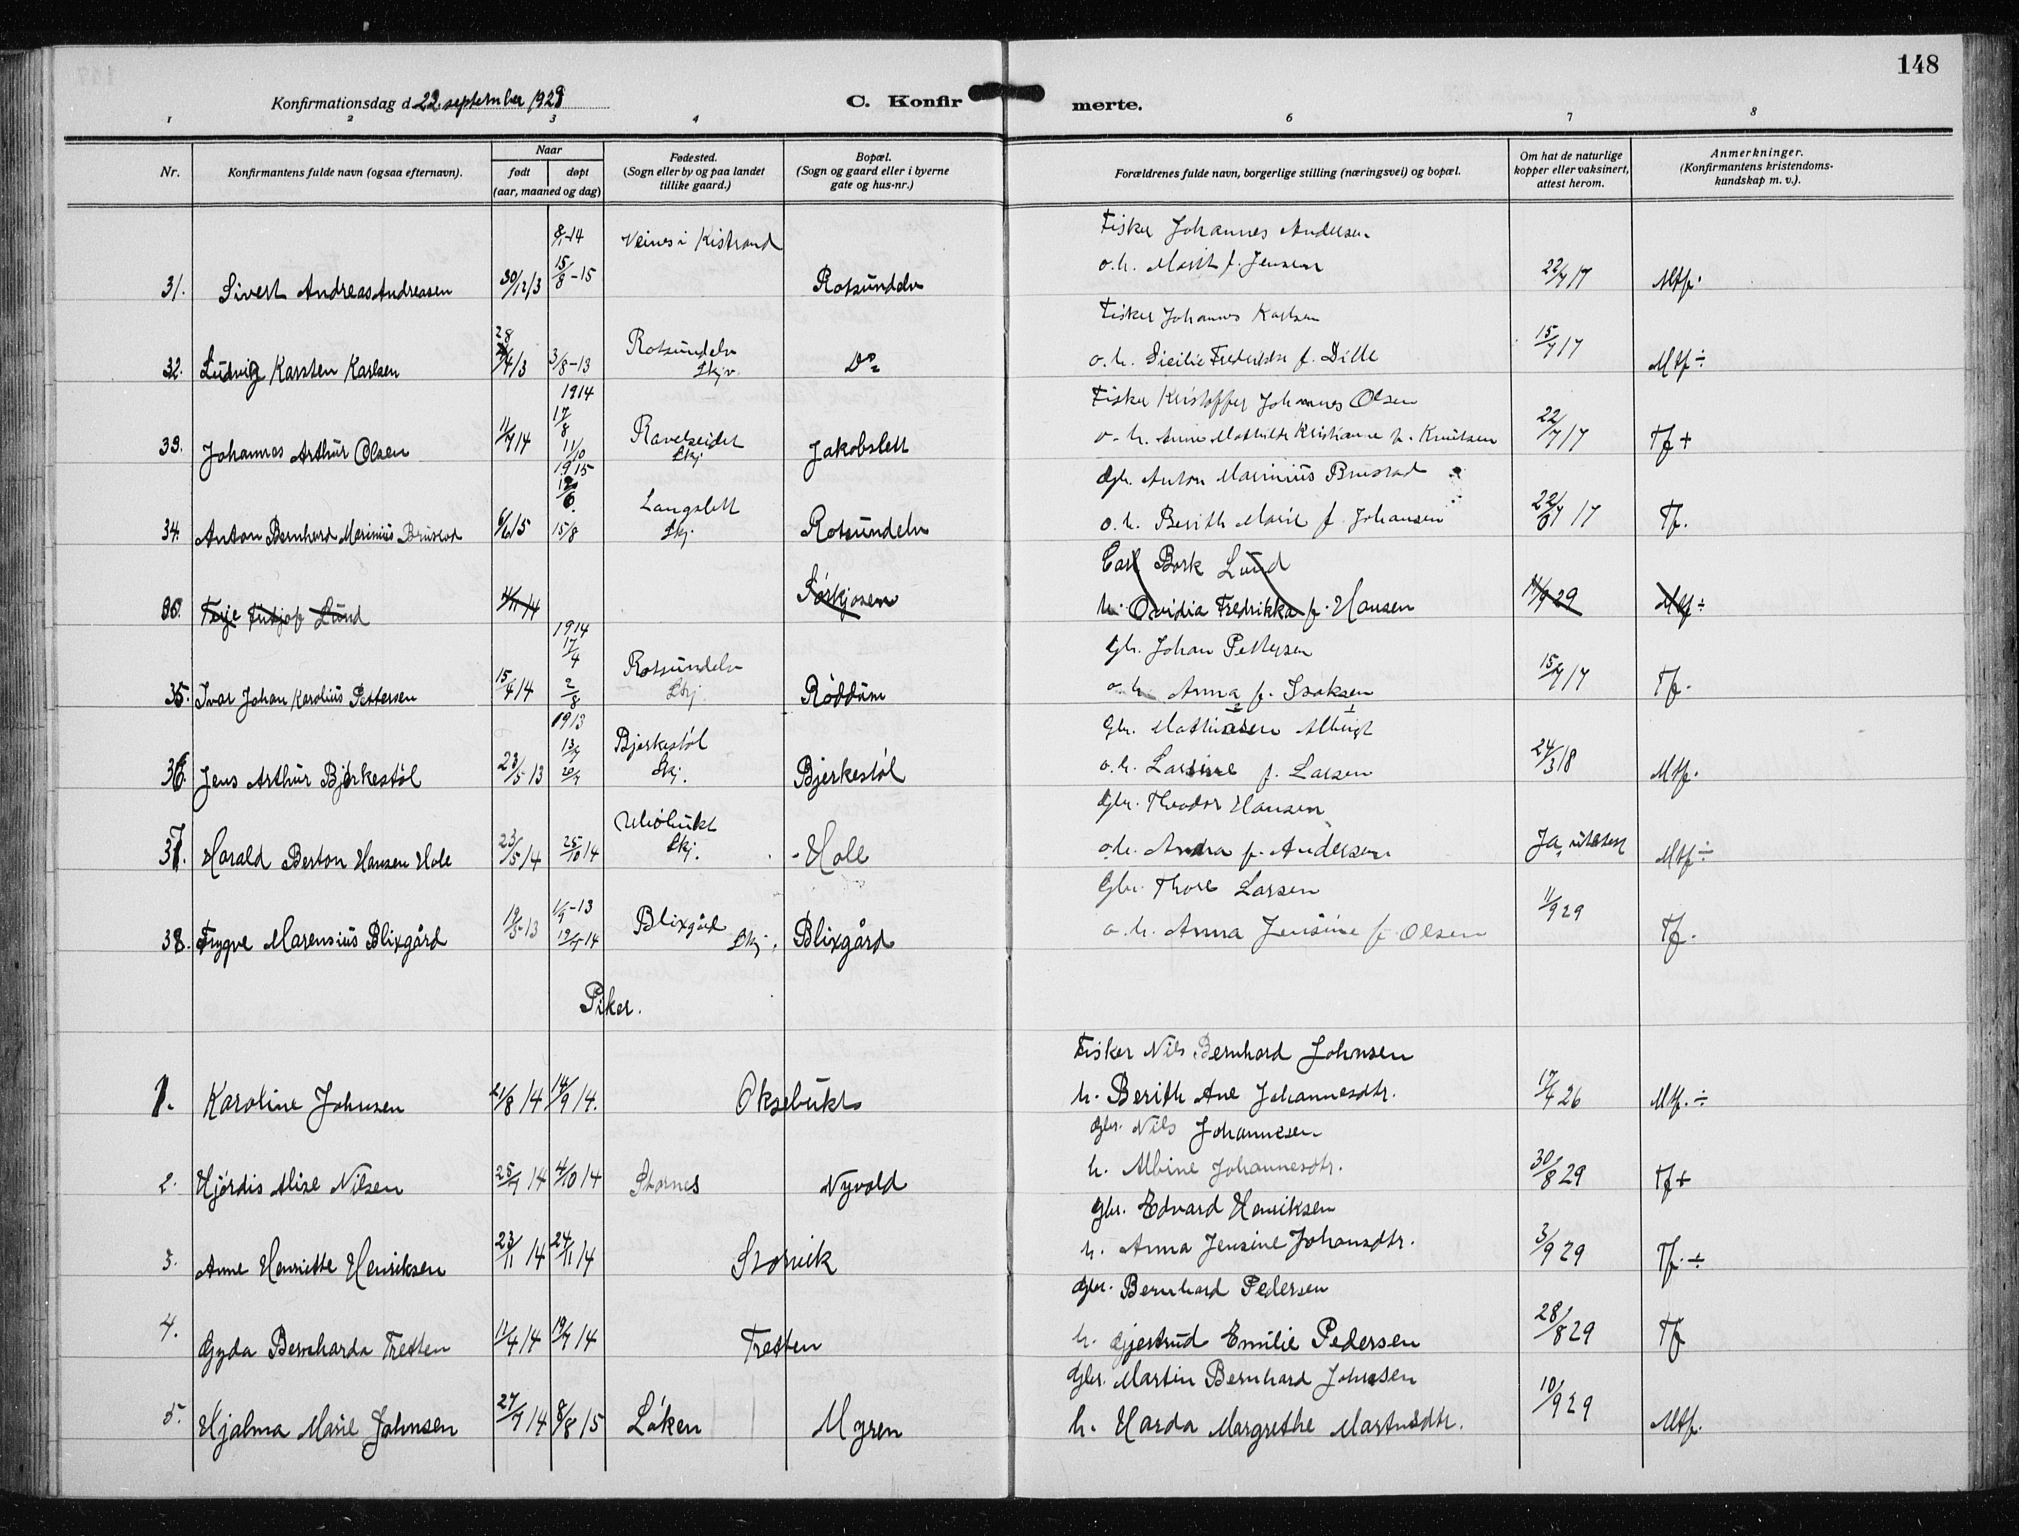 148
Konfirmationsdag d. 22. september 1929
C. Konfirmerte.
1 2 3 4 6 7 8
Nr.
Konfirmantens fulde navn (ogsaa efternavn).
Naar
født døpt
(aar, maaned og dag)
Fødested.
(Sogn eller by og paa landet
tillike gaard.)
Bopæl.
(Sogn og gaard eller i byerne
gate og hus-nr.)
Forældrenes fulde navn, borgerlige stilling (næringsvei) og bopæl.
Om hat de naturlige
kopper eller vaksinert,
attest herom.
Anmerkninger.
(Konfirmantens kristendoms-
kundskap m. v.).
8/1-14 Veines i Kistrand Fisker Johannes Andersen
31. Sivert Andreas Andreasen 30/12 13 15/8-15 Rotsundelv o. h. Marit f. Jensen 22/7 17 Mtf.
Fisker Johannes Karlsen
32. Ludvig Karsten Karlsen 28/4 13 3/8-13 Rotsundelv Skjv. Do o. h. f. Dille 15/7 17 Mtf ÷
1914 17/8 Fisker Kristoffer Johannes Olsen
33. Johannes Arthur Olsen 11/7 14 11/10 Ravelseidet Skj. Jakobslett o. h. Anne Mathilde Kristianne f. Knutsen 22/7 17 Tf +
1915 Gbr. Anton Marinius Brustad
34. Anton Bernhard Marinius Brustad 6/6 15 15/8 Langslett Skj. Rotsundelv o. h. Berith Marie f. Johansen 22/7 17 Tf.
Carl Bork Lund
Lund 14 Sørkjosen h. Ovidia Fredrikka f. Hansen 29 Mtf ÷
1914 17/4 Gbr. Johan Pettersen
35. Ivar Johan Karolius Pettersen 15/4 14 2/8 Rotsundelv Skj. Røddum o. h. Anna f. Isaksen 15/7 17 Tf.
1913 13/7 Gbr. Mathiasen Albrigt
36. Jens Arthur Bjerkestøl 23/5 13 20/7 Bjerkestøl Skj. Bjerkestøl o. h. f. Larsen 24/3 18 Mtf.
Gbr. Theodor Hansen
37. Harald Berton Hansen Hole 23/5 14 25/10 14 Skj. Hole o. h. Andrea f. Andersen Ja, Mtf ÷
Gbr. Thore Larsen
38. Trygve Marensius Blixgård 19/5-13 1/9-13 19/7-14 Blixgård Skj. Blixgård o. h. Anna Jensine f. Olsen 11/9 29 Tf.
Piker.
Fisker Nils Bernhard Johnsen
1. Karoline Johnsen 21/8 14 14/9 14. Oksebukt h. Berith Ane Johannesdtr. 17/7 26 Mtf. ÷
Gbr. Nils Johannesen
2. Hjørdis Alise Nilsen 25/7 14 4/10 14 Stornes Nyvold h. Albine Johannesdtr. 30/8 29 Tf +
Gbr. Edvard Henriksen
3. Anne Henriette Henriksen 23/11 14 24/11 14 Storvik h. Anna Jensine Johansdtr. 3/9 29 Tf. ÷
Gbr. Bernhard Pedersen
4. Gyda Bernharda Tretten 11/4 14 19/7 14 Tretten h. Gjertrud Emilie Pedersen 28/8 29 Tf
Gbr. Martin Bernhard Johnsen
5. Hjalma Marie Johnsen 27/7 14 8/8 15 Løken Myren h. Harda Margrethe Martinsdtr. 10/9 29 Mtf.